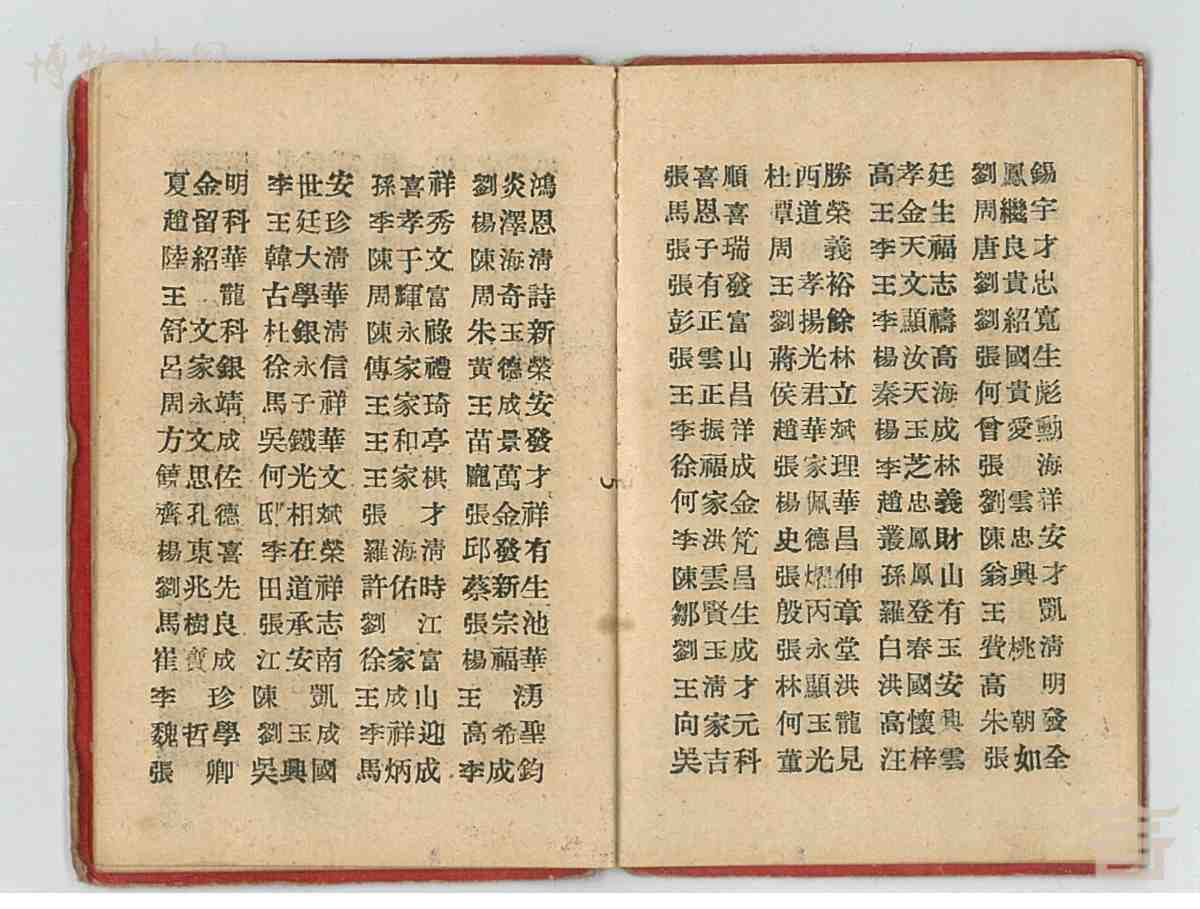 博物中国
夏金明 李世安 孫喜祥 劉炎鴻
趙留科 王廷珍 李孝秀 楊澤恩
陸紹華 韓大清 陳于文 陳海清
王 龍 古學華 周輝富 周奇詩
舒文科 杜銀清 陳永祿 朱玉新
呂家銀 徐永信 傅家禮 黃德榮
周永靖 馬子祥 王家琦 王成安
方文成 吳鐵華 王和亭 苗景發
饒思佐 何光文 王家棋 龐萬才
齊孔德 邸相斌 張 才 張金祥
楊東喜 李在榮 羅海清 邱發有
劉兆先 田道祥 許佑時 蔡新生
馬樹良 張承志 劉 江 張宗池
崔寶成 江安南 徐家富 楊福華
李 珍 陳 凱 王成山 王 湧
魏哲學 劉玉成 李祥迎 高希聖
張 卿 吳興國 馬炳成 李成鈞
張喜順 杜西勝 高孝廷 劉鳳錫
馬恩喜 覃道榮 王金生 周繼宇
張子瑞 周 義 李天福 唐良才
張有發 王孝裕 王文志 劉貴忠
彭正富 劉揚餘 李顯禱 劉紹寬
張雲山 蔣光林 楊汝高 張國生
王正昌 侯君立 秦天海 何貴彪
李振洋 趙華斌 楊玉成 曾愛勳
徐福成 張家理 李芝林 張 海
何家金 楊佩華 趙忠義 劉雲祥
李洪 史德昌 叢鳳財 陳忠安
陳雲昌 張燿伸 孫鳳山 翁興才
鄒賢生 殷丙章 羅登有 王 凱
劉玉成 張永堂 白春玉 費桃清
王清才 林顯洪 洪國安 高 明
向家元 何玉龍 高懷興 朱朝發
吳吉科 董光見 汪梓雲 張如全